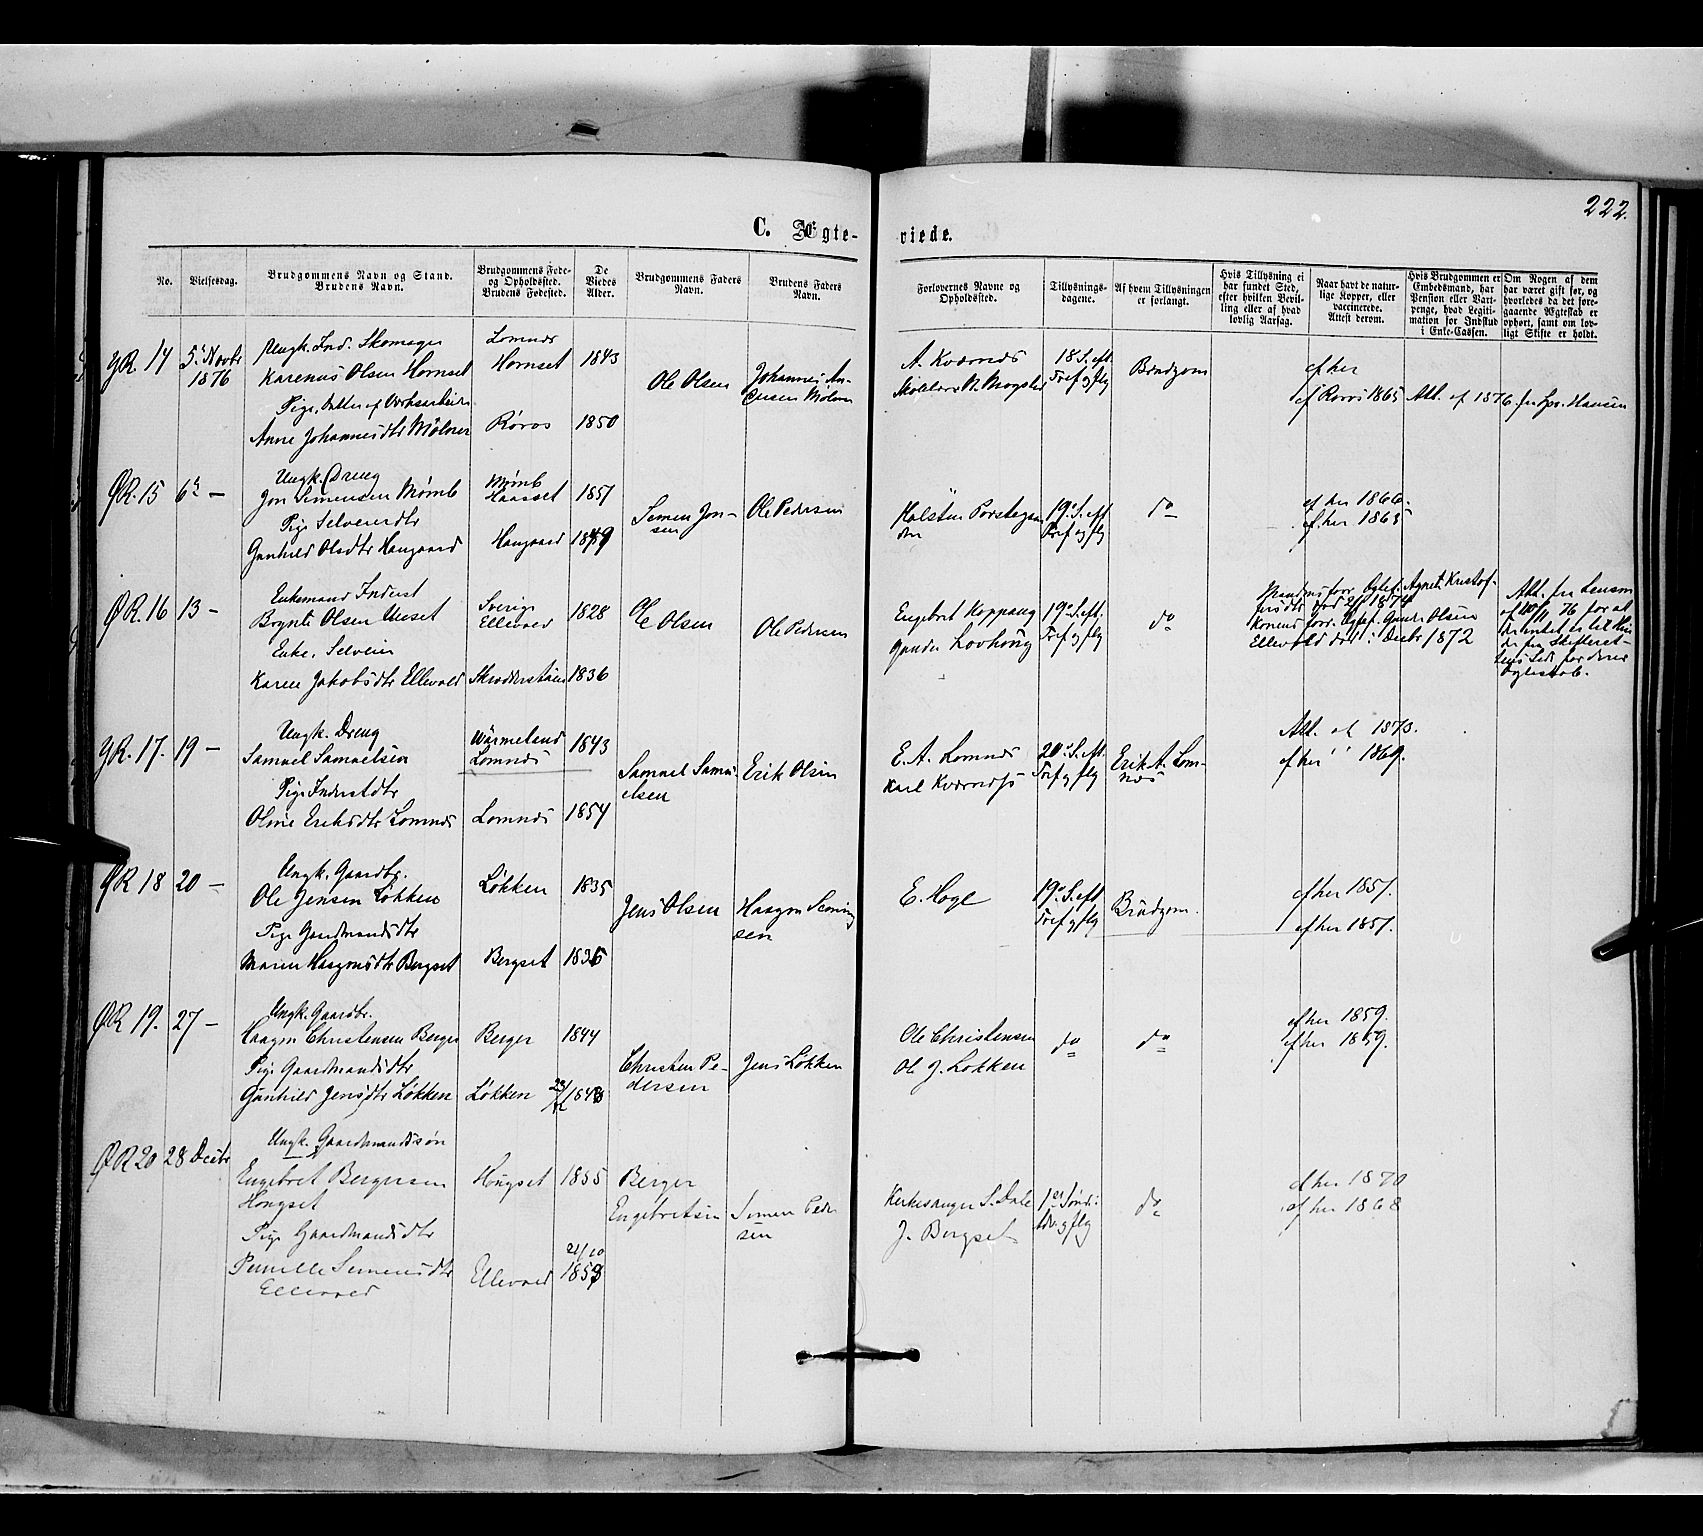 222.
C. Ægte- viede.
No.
Vielsesdag.
Brudgommens Navn og Stand.
Brudens Navn.
Brudgommens Føde-
og Opholdssted.
Brudens Fødested.
De
Viedes
Alder.
Brudgommens Faders
Navn.
Brudens Faders
Navn.
Forlovernes Navne og
Opholdssted.
Tillysnings-
dagene.
Af hvem Tillysningen
er forlangt.
Hvis Tillysning ei
har fundet Sted,
efter hvilken Bevil-
ling eller af hvad
lovlig Aarsag.
Naar havt de natur-
lige Kopper, eller
vaccinerede.
Attest derom.
Hvis Brudgommen er
Embedsmand, har
Pension eller Vart-
penge, hvad Legiti-
mation for Indskud
i Enke-Cassen.
Om Nogen af dem
har været gift før, og
hvorledes da det fore-
gaaende Ægteskab er
ophørt, samt om lov-
ligt Skifte er holdt.
YR. 14
5. Novbr
1876
Ungk. Ind. Skomager
Karenus Olsen Hornset
Pige, Datter af
Anne Johannesdtr Mölner
Lomnes
Hornset
Røros
1843
1850
Ole Olsen
Johannes An-
A. Kværnes
18. S. eft.
Tref og flg
Brudgom
ef her
ef Røros 1865
Att. ef 1876 fr Spr. Hansen
ØR. 15
6 –
Ungk. Dreng
Jon Simensen Mömb
Pige Selveierdtr
Gunhild Olsdtr Haugaard
Mömb
Haasset
Haugaard
1851
1849
Simen Jon-
sen
Ole Pedersen
19. S. eft
Tref og flg
do
ef her 1866.
ef her 1865
ØR. 16
13 –
Enkemand Inderst
Brynte Olsen Uusset
Enke, Selveier
Karen Jakobsdtr Ellevold
Sverige
Ellevold
1828
1836
Ole Olsen
Ole Pedersen
Engebret Koppang
Gunder Lovhöug
19. S. eft.
Tref og flg
do
Mandens forr. Ægtef. Agnete Kristof-
fersdtr död 1874
Konens forr. Ægtef. Gunder Olsen
Ellevold död i Decbr 1872
Att. fra Lensm
YR. 17.
19 –
Ungk. Dreng
Samuel Samuelsen
Pige Inderstdtr
Oline Eriksdtr Lomnes
Wärmeland
Lomnes
Lomnes
1843
1854
Samuel Samu-
elsen
Erik Olsen
E. A. Lomnes
Karl Kværnes
20. S. eft.
Tref og flg
Erik A. Lom-
nes
Att. ef 1873.
ef her 1869.
ØR 18
20 –
Ungk. Gaardbr.
Ole Jensen Lökken
Pige Gaardmandsdtr
Maren Haagensdtr Bergset
Lökken
Bergset
1835
1836
Jens Olsen
Haagen
sen
E. Hoge
19. S. eft
Tref og flg
Brudgom.
ef her 1851.
ef her 1851.
ØR 19.
27 –
Ungk. Gaardbr.
Haagen Christensen Berger
Pige Gaardmandsdtr
Gunhild Jensdtr Lökken
Berger
Lökken
1844
1848
Christen Pe-
dersen
Jens Lökken
Ole Christensen
Ole J. Lökken
do
do
ef her 1859.
ef her 1859.
ØR 20
28 Decbr
Ungk. Gaardmandssön
Engebret Bergersen
Hougset
Pige Gaardmandsdtr
Pernille Simensdtr
Ellevold
Hougset
Ellevold
1855
21/10
1853
Berger
Engebretsen
Simen Peder
sen
Kirkesanger S. Dale
J. Bergset
do
ef her 1870
ef her 1868